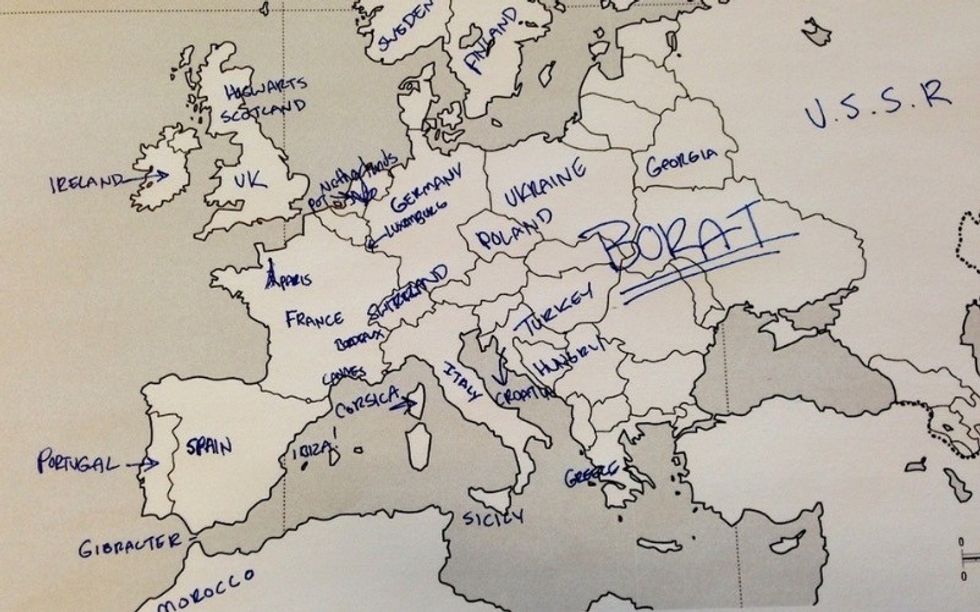 SWEDEN
FINLAND
HOGWARTS
SCOTLAND
U.S.S.R
IRELAND
UK
Netherlands
POT
GERMANY
LUXEMBURG
UKRAINE
GEORGIA
POLAND
BORAT
PARIS
FRANCE
BORDEAUX
TURKEY
HUNGRY
CANNES
CORSICA
ITALY
CROATIA
PORTUGAL
SPAIN
IBIZA!
GREECE
SICILY
GIBRALTER
MOROCCO
0
0